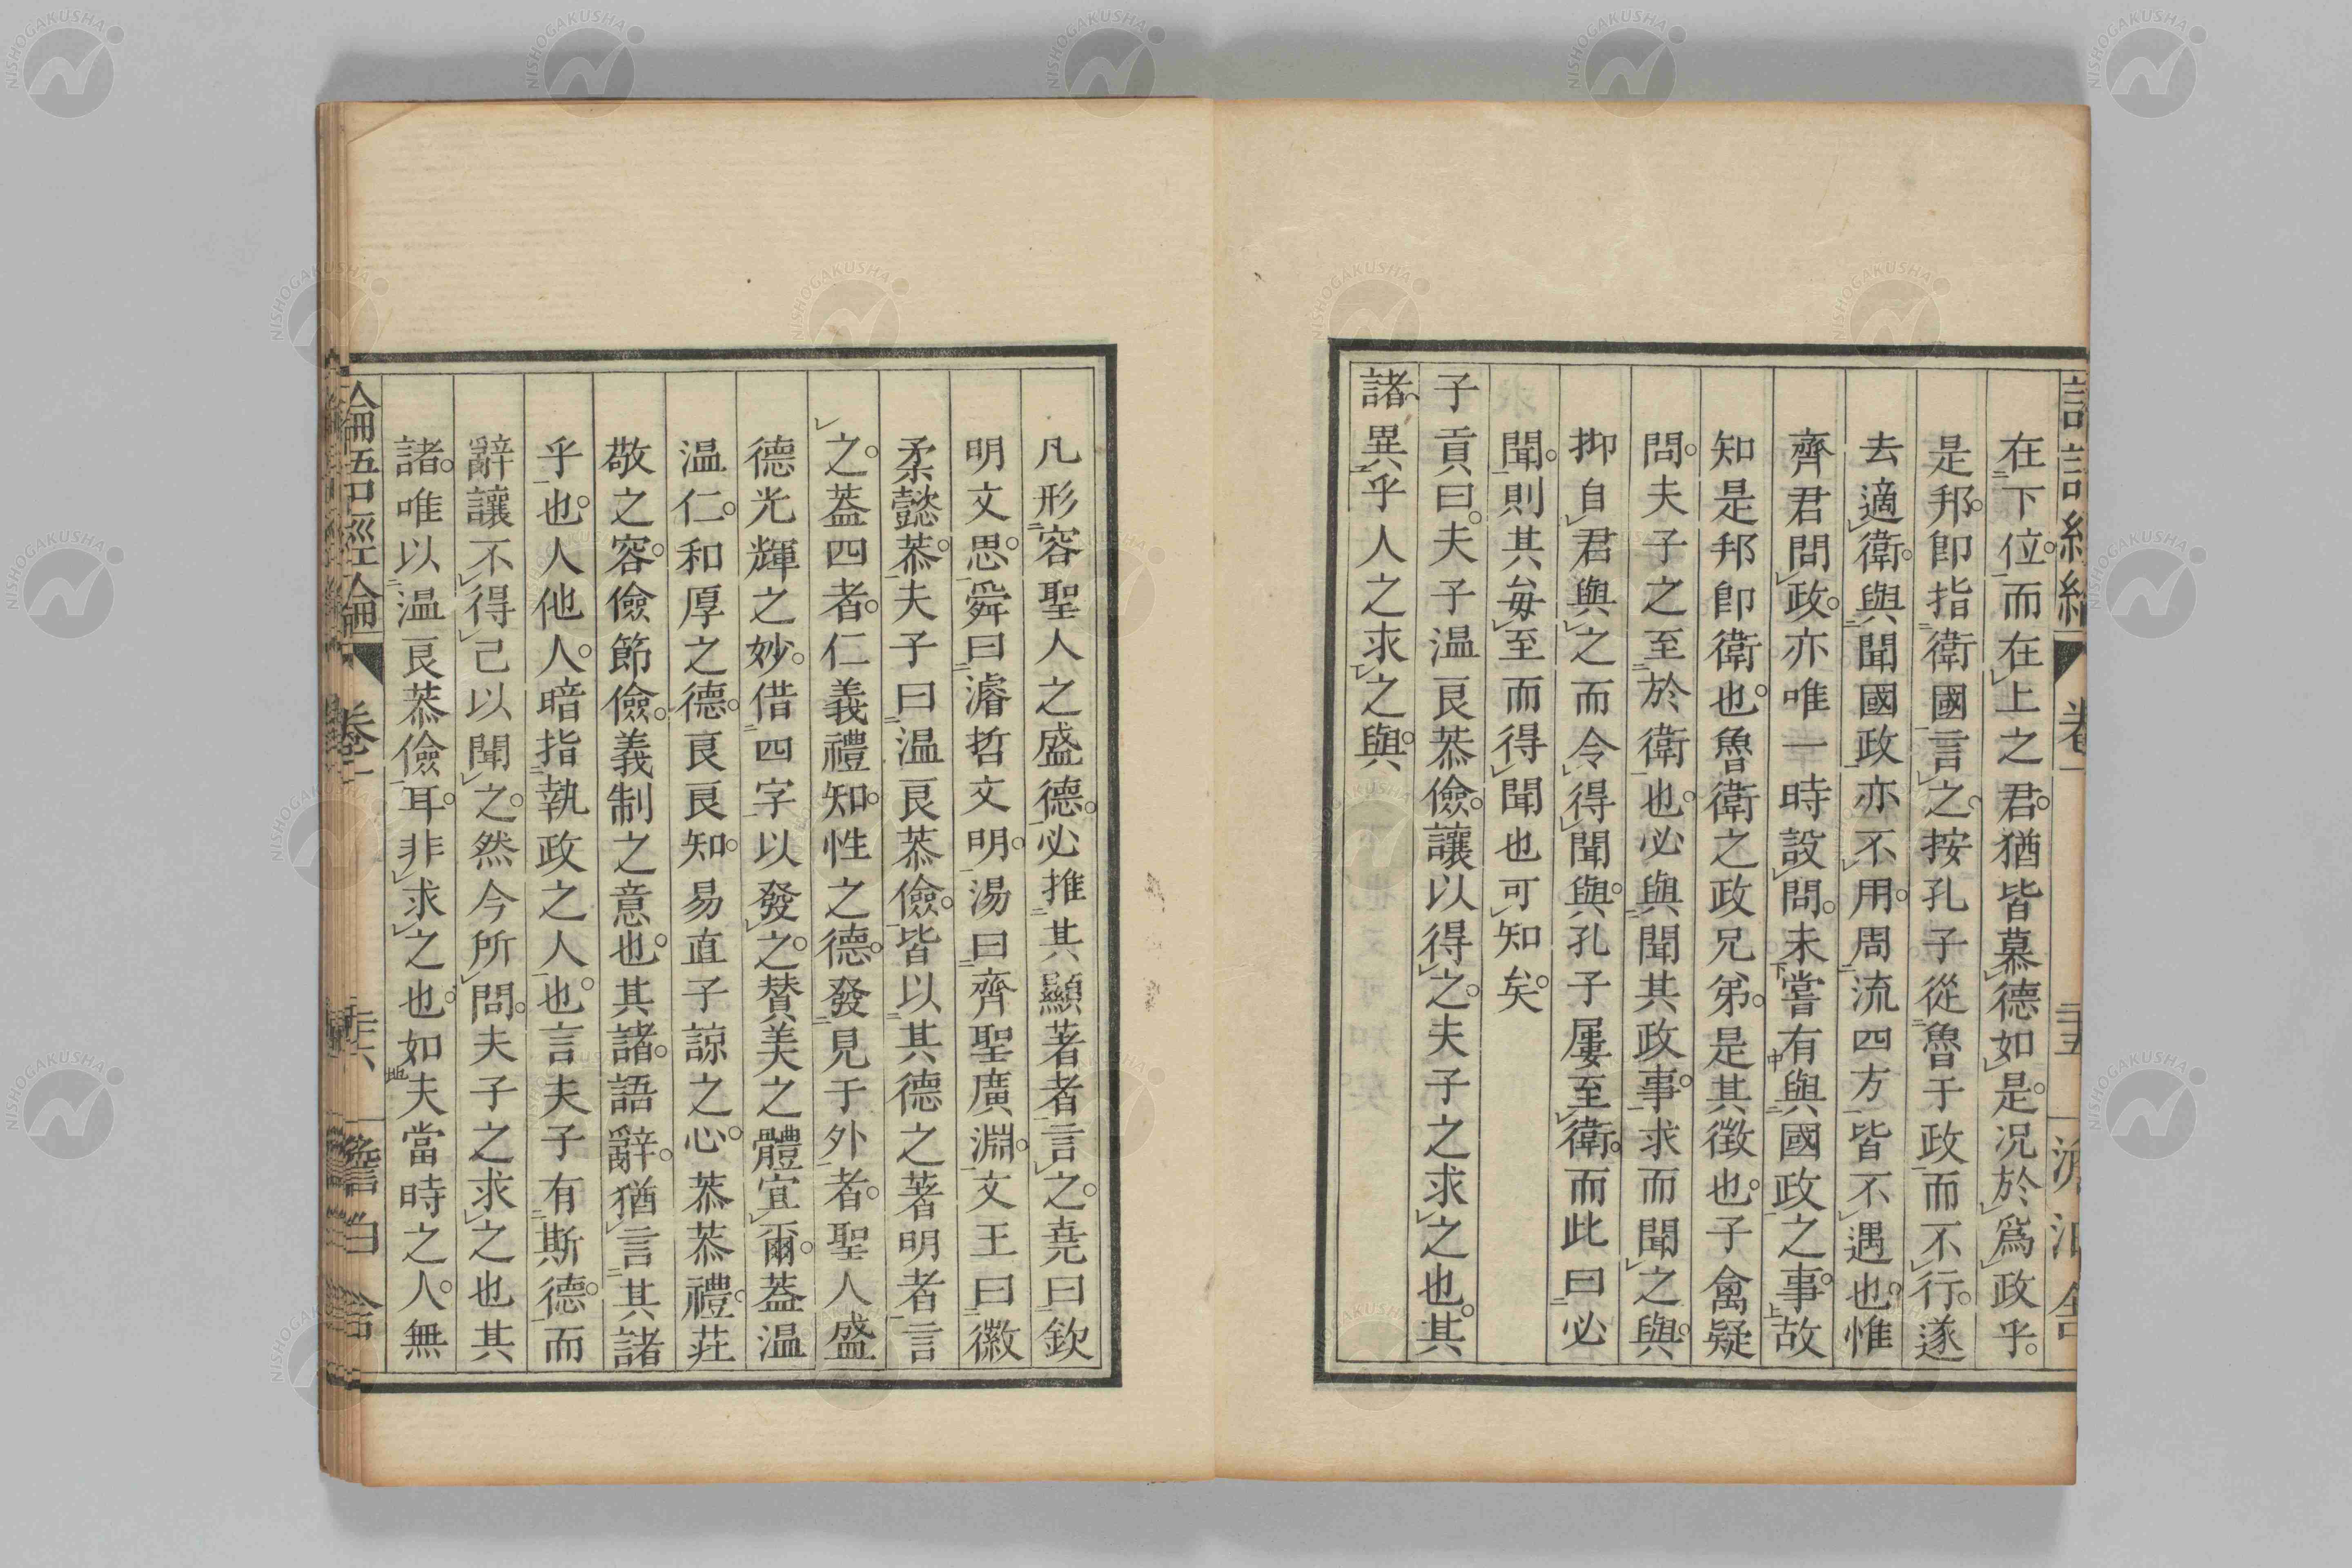 在下位。而在上之君。猶皆慕德如是。况於爲政乎。
是邦。卽指衛國言之。按孔子從魯于政而不行。遂
去適衛。與聞國政亦不用。周流四方皆不遇也。惟
齊君問政。亦唯一時設問。未嘗有與國政之事。故
知是邦卽衛也。魯衛之政兄弟。是其徵也。子禽疑
問。夫子之至於衛也。必與聞其政事。求而聞之與。
抑自君與之而令得聞與。孔子屢至衛。而此曰必
聞。則其每至而得聞也可知矣。
子貢曰。夫子温良恭儉。讓以得之。夫子之求之也。其
諸。異乎人之求之與。
凡形容聖人之盛德。必推其顯著者言之。堯曰欽
明文思。舜曰濬哲文明。湯曰齊聖廣淵。文王曰徽
柔懿恭。夫子曰温良恭儉。皆以其德之著明者言
之。葢四者。仁義禮知。性之德。發見于外者。聖人盛
德光輝之妙。借四字以發之。賛美之體宜爾。葢温
温仁。和厚之德。良良知。易直子諒之心。恭恭禮。莊
敬之容。儉節儉。義制之意也。其諸。語辭。猶言其諸
乎也。人他人。暗指執政之人也。言夫子有斯德。而
辭讓不得已以聞之。然今所問。夫子之求之也其
諸。唯以温良恭儉耳。非求之也。如夫當時之人。無
論語經論 卷一
NISHOGAKUSHA